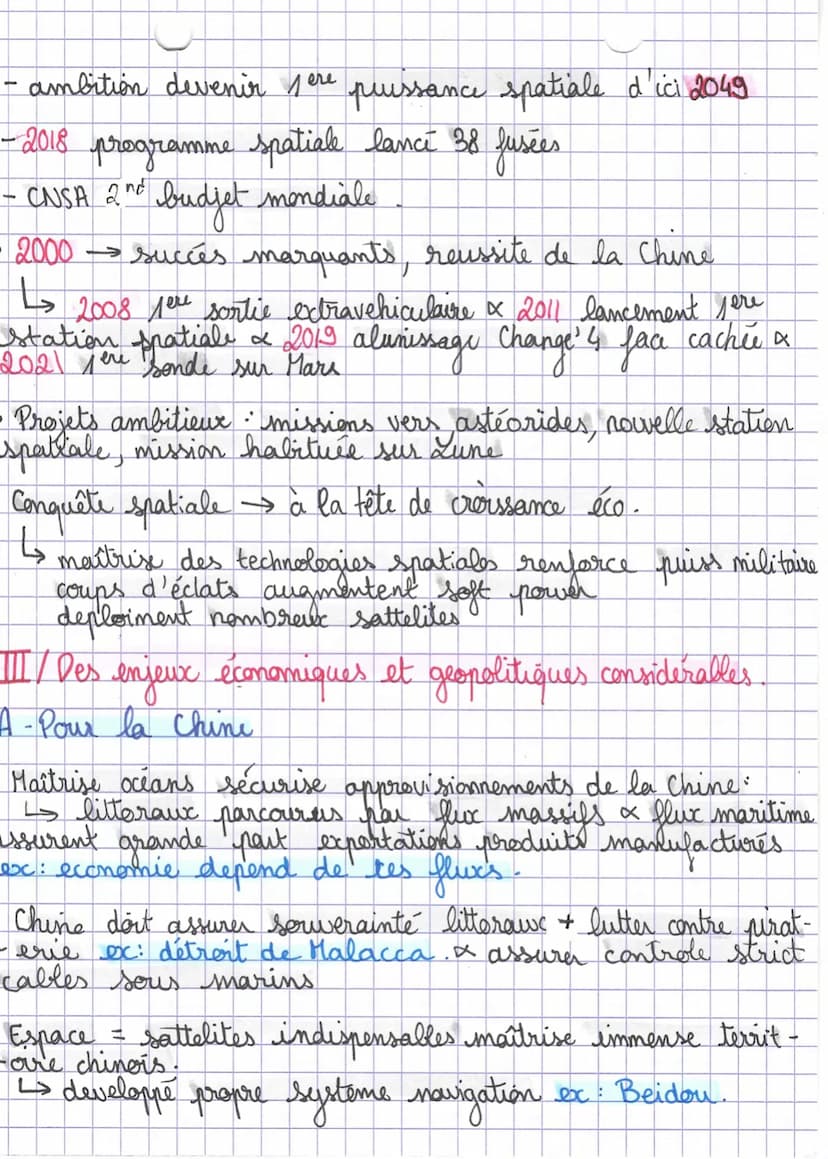 - ambition devenir 1ere puissance spatiale d'ici 2049
- 2018 programme spatiale lancé 38 fusées
- CNSA 2nd budget mondiale.
- 2000 → succés marquants, reussite de la Chine
↳ 2008 1ere sortie extravehiculaire ∝ 2011 lancement 1ere
station spatiale ∝ 2019 alunissage Chang'e 4 face cachée ∝
2021 1ère sonde sur Mars
- Projets ambitieux : missions vers astéorides, nouvelle station
spatiale, mission habituée sur Lune
Conquête spatiale → à la tête de croissance éco.
↳ maîtrise des technologies spatiales renforce puiss militaire
coups d'éclats augmentent soft power
deploiment nombreux sattelites
III/ Des enjeux économiques et geopolitiques considérables.
A - Pour la Chine
Maîtrise océans sécurise approvisionnements de la Chine :
↳ littoraux parcourus par flux massifs ∝ flux maritime
assurent grande part exportations produits manufacturés
ex: economie depend de ces fluxs.
Chine doit assurer souverainté littoraux + lutter contre pirat-
-erie ex: détroit de Malacca. ∝ assurer controle strict
cables sous marins
Espace = sattelites indispensalles maîtrise immense territ-
-oire chinois.
↳ developpé propre système navigation ex : Beidou.